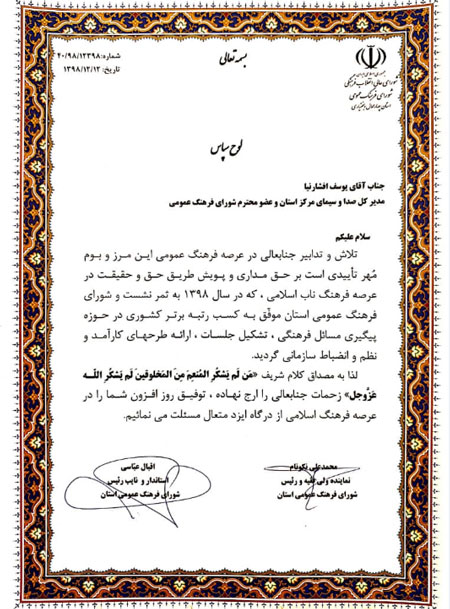 بسمه تعالی
شماره: ۴۰/۹۸/۱۲۳۹۸
تاریخ: ۱۳۹۸/۱۲/۱۲
جمهوری اسلامی ایران
شورای عالی انقلاب فرهنگی
شورای فرهنگ عمومی
استان چهارمحال و بختیاری
لوح سپاس
جناب آقای یوسف افشارنیا
مدیر کل صدا و سیمای مرکز استان و عضو محترم شورای فرهنگ عمومی
سلام علیکم
تلاش و تدابیر جنابعالی در عرصه فرهنگ عمومی این مرز و بوم
مُهر تأییدی است بر حق مداری و پویش طریق حق و حقیقت در
عرصه فرهنگ ناب اسلامی ، که در سال ۱۳۹۸ به ثمر نشست و شورای
فرهنگ عمومی استان موفّق به کسب رتبه برتر کشوری در حوزه
پیگیری مسائل فرهنگی ، تشکیل جلسات ، ارائه طرحهای کارآمد و
نظم و انضباط سازمانی گردید.
لذا به مصداق کلام شریف «مَن لَم یَشکُرِ المُنعِمَ مِنَ المَخلوقینَ لَم یَشکُرِ اللـه
عَزَّوجل» زحمات جنابعالی را ارج نهاده ، توفیق روز افزون شما را در
عرصه فرهنگ اسلامی از درگاه ایزد متعال مسئلت می نمائیم.
محمدعلی نکونام
نماینده ولی فقیه و رئیس
شورای فرهنگ عمومی استان
اقبال عباسی
استاندار و نایب رئیس
شورای فرهنگ عمومی استان